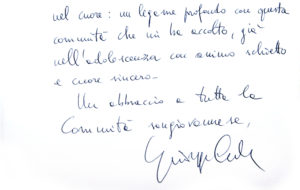 nel cuore: un legame profondo con questa
comunità che mi ha accolto, già
nell'adolescenza con animo schietto
e cuore sincero.
Un abbraccio a tutta la
Comunità sangiovannese,